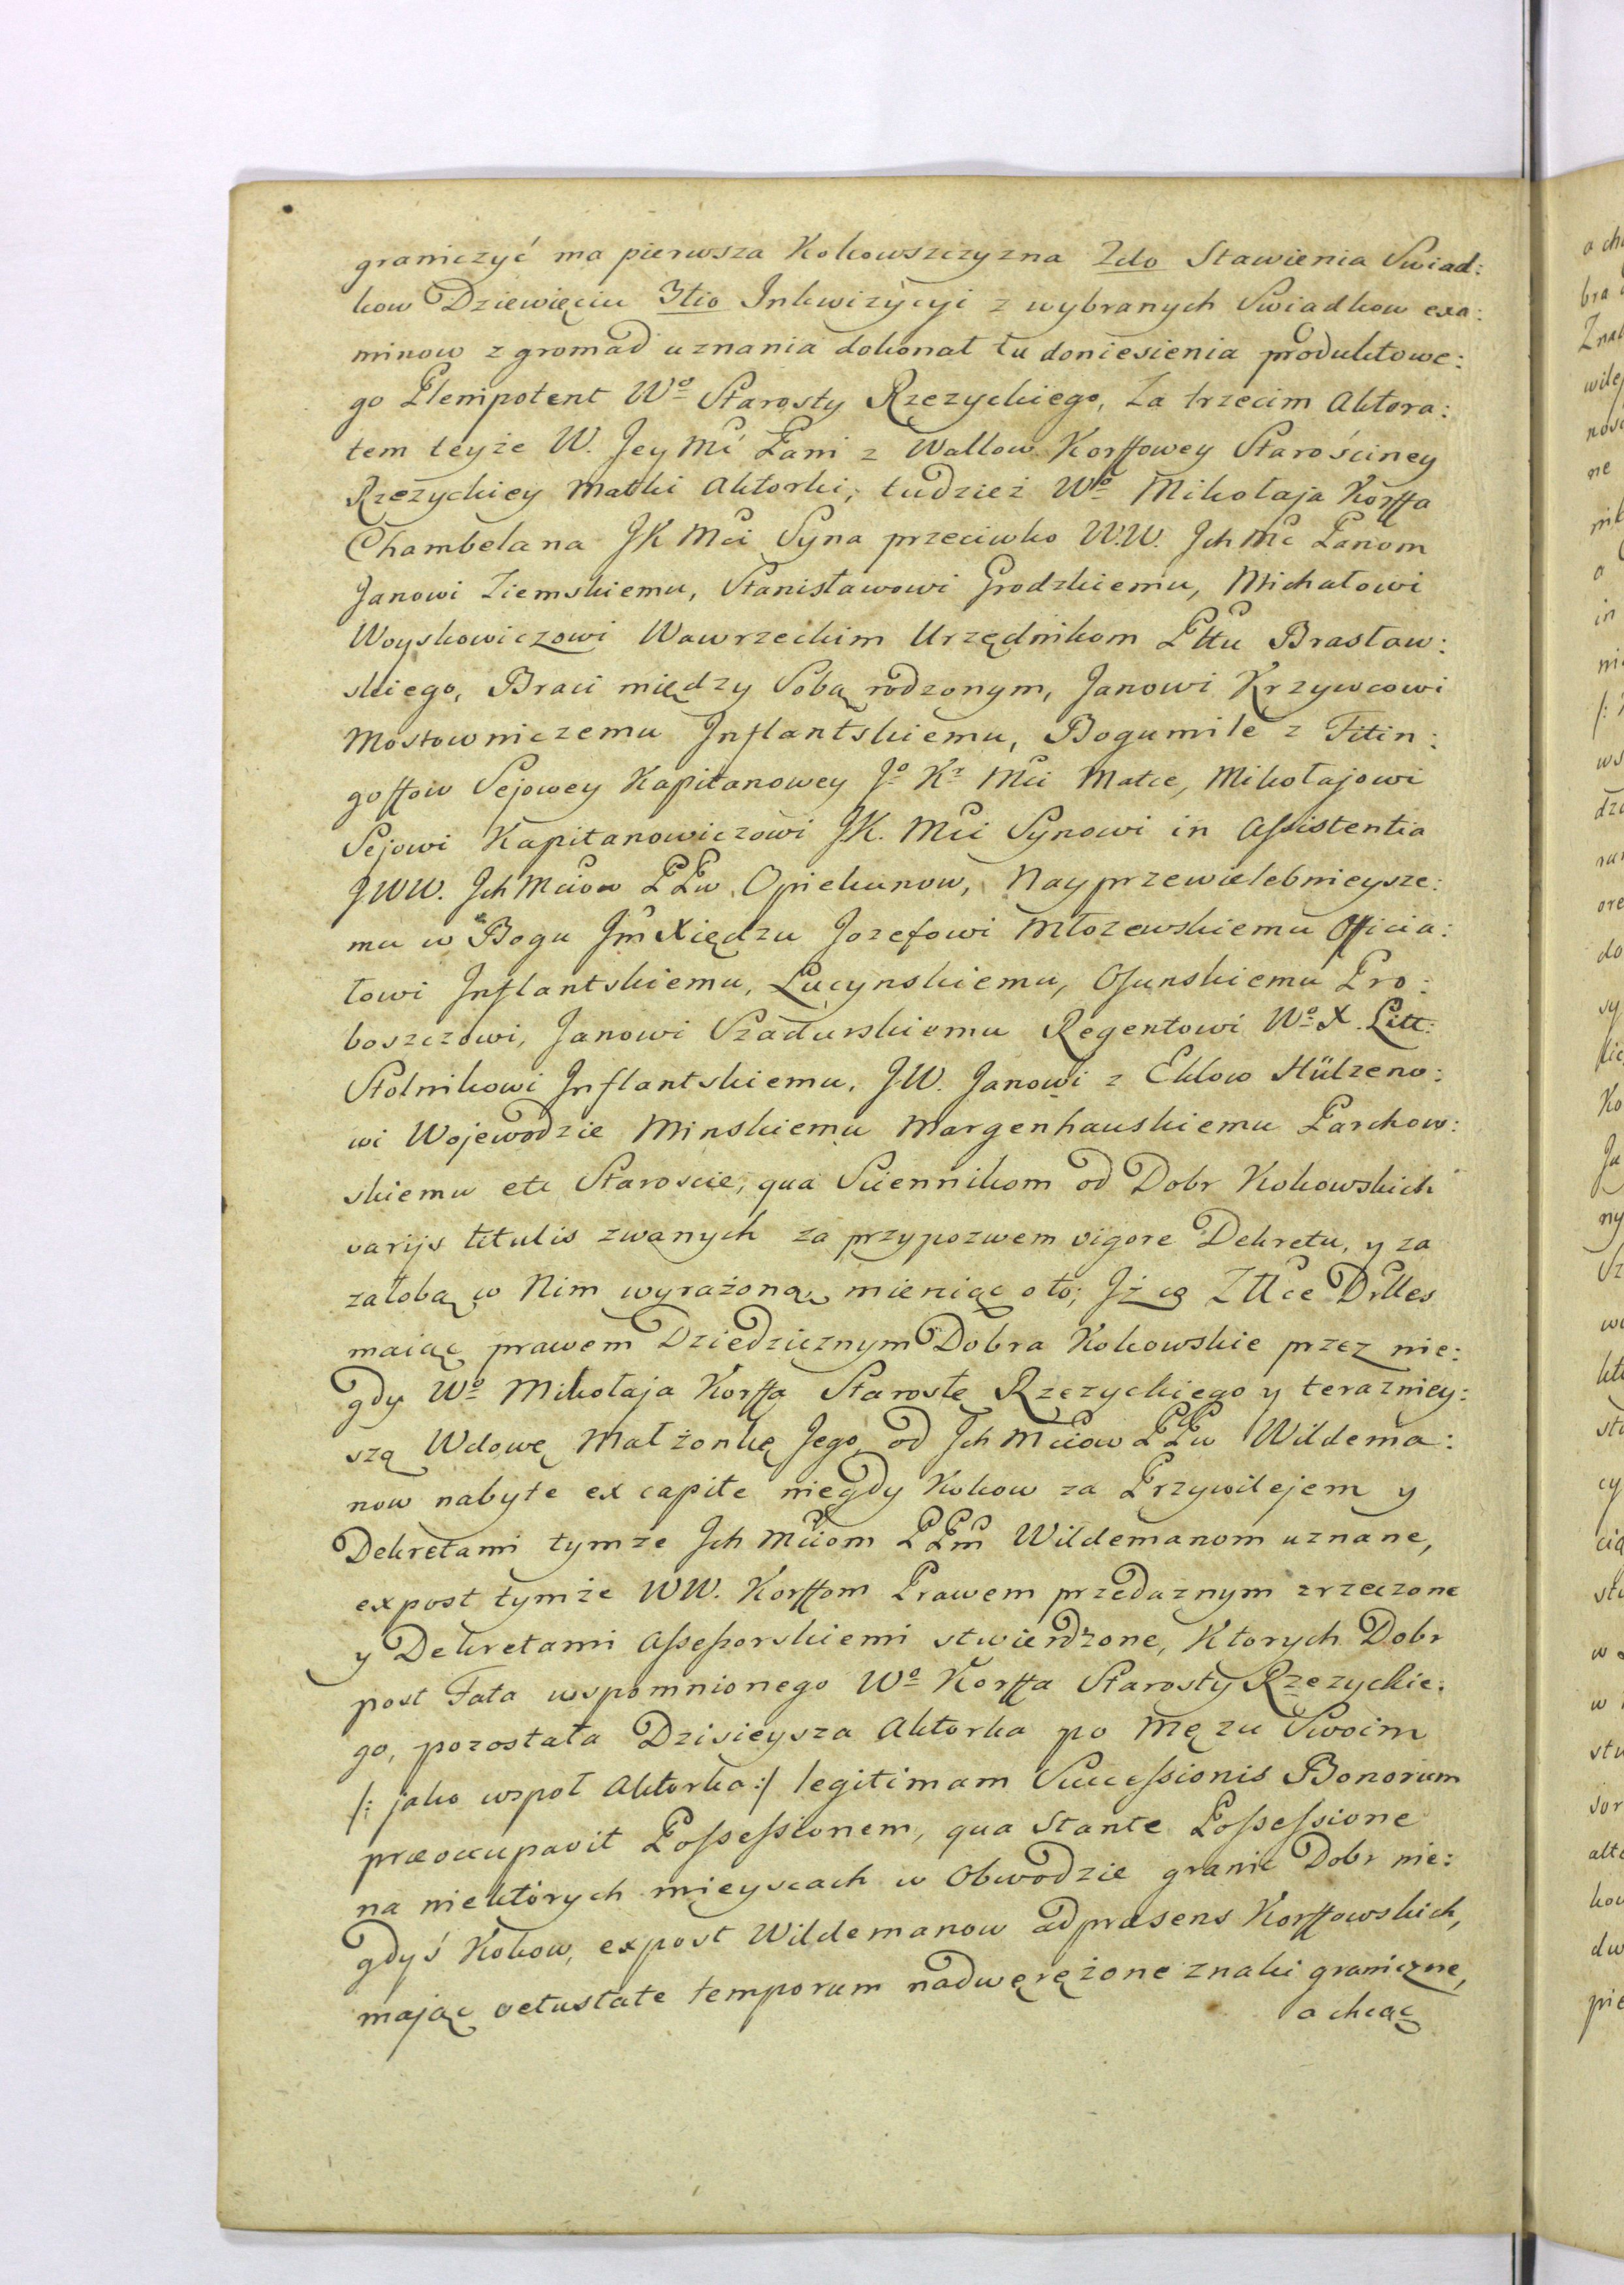 graniczyć ma pierwsza Kokowszczyzna 2do Stawienia Swiad:
kow Dziewięciu 3tio Inkwizycyi z wybranych Swiadkow exa:
minow z gromad uznania dokonał tu doniesienia produktowe:
go Plenipotent Wo Starosty Rzezyckiego, Za trzecim Aktora:
tem teyże W. Jey Mć Pani z Wallow Korffowey Starościney
Rzeżyckiey Matki Aktorki, tudzież Wo Mikołaja Korffa
Chambelana JK Mci Syna przeciwko W.W. Jch Mć Panom
Janowi Ziemskiemu, Stanisławowi Grodzkiemu, Michałowi
Woyskowiczowi Wawrzeckim Urzędnikom Pttu Brasław:
skiego, Braci między Sobą rodzonym, Janowi Krzywcowi
Mostowniczemu Inflantskiemu, Bogumile z Fitin:
goffow Sejowey Kapitanowey Jo Kr Mci Matce, Mikołajowi
Sejowi Kapitanowiczowi JK. Mci Synowi in Assistentia
JWW. Jch Mciow PPw Opiekunow, Nayprzewielebnieysze:
mu w Bogu Jm Xiędzu Jozefowi Młozewskiemu Officia:
łowi Inflantskiemu, Lucynskiemu, Osunskiemu Pro:
boszczowi, Janowi Szadurskiemu Regentowi Wo X. Litt:
Stolnikowi Inflantskiemu, JW. Janowi z Eklow Hülzeno:
wi Wojewodzie Minskiemu Margenhauskiemu Parchow:
skiemu etc Staroscie, qua Sciennikom od Dobr Kokowskich
varijs titulis zwanych za przypozwem vigore Dekretu, y za
załobą w Nim wyrażoną, mieniąc o to; Jż cą Zttce Drttes
maiąc prawem Dziedzicznym Dobra Kokowskie przez nie:
gdy Wo Mikołaja Korffa Starostę Rzezyckiego y terazniey:
szą Wdowę Małżonkę Jego, od Jch Mciow PPw Wildema:
now nabyte ex capite niegdy Kokow za Przywilejem y
Dekretami tymze Jch Mciom PPm Wildemanom uznane,
expost tymże WW. Korffom Prawem przedaznym zrzeczone
y Dekretami Assessorskiemi stwierdzone, Ktorych Dobr
post Fata wspomnionego Wo Korffa Starosty Rzezyckie:
go, pozostała Dzisieysza Aktorka po Męzu Swoim
/: jako wspoł Aktorka :/ legitimam Successionis Bonorum
præoccupavit Possessionem, qua Stante Possessione
na niektórych mieyscach w Obwodzie granic Dobr nie:
gdyś Kokow, expost Wildemanow ad præsens Korffowskich,
mając vetustate temporum nadwęręźone znaki graniczne,
a chcąc